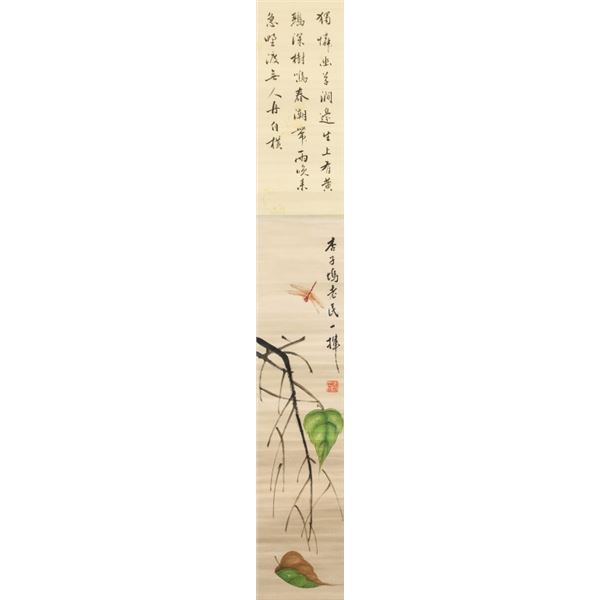 獨憐幽草澗邊生上有黃
鸝深樹鳴春潮帶雨晚來
急野渡無人舟自橫
杏子塢老民一揮